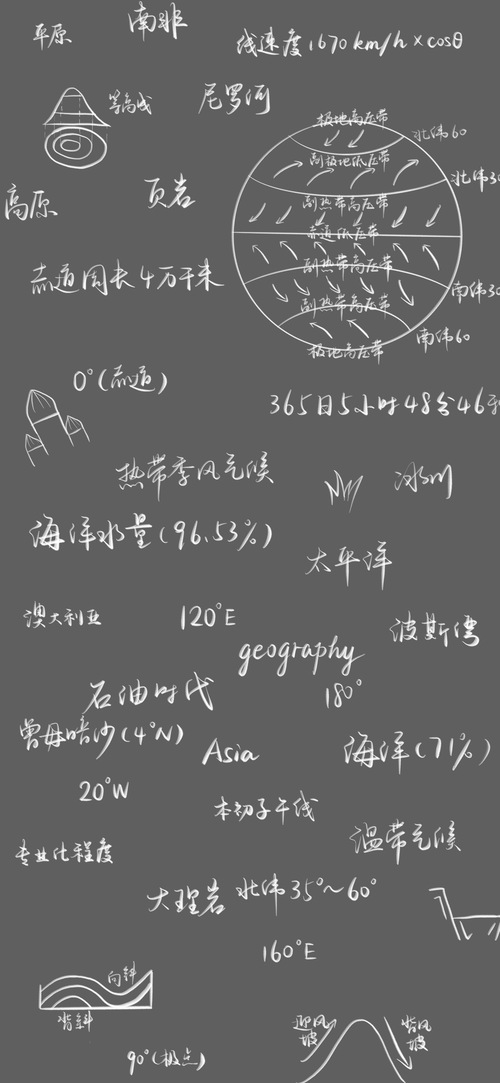 平原
南非
线速度1670km/h×cosθ
等高线
尼罗河
极地高压带
北纬60
副极地低压带
北纬30
副热带高压带
赤道低压带
高原
页岩
副热带高压带
赤道周长4万千米
副热带高压带
南纬30
极地高压带
南纬60
0°(赤道)
365日5小时48分46秒
热带季风气候
冰川
海洋水量(96.53%)
太平洋
澳大利亚
120°E
波斯湾
geography
石油时代
180°
曾母暗沙(4°N)
Asia
海洋(71%)
20°W
本初子午线
温带气候
专业化程度
大理岩
北纬35°~60°
160°E
向斜
背斜
迎风坡
背风坡
90°(极点)